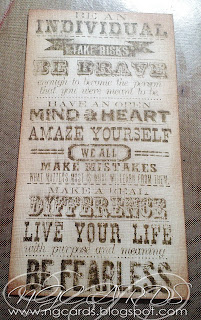 BE AN
INDIVIDUAL
TAKE RISKS
BE BRAVE
enough to become the person
that you were meant to be
HAVE AN OPEN
MIND & HEART
AMAZE YOURSELF
WE ALL
MAKE MISTAKES
WHAT MATTERS IS THAT WE LEARN FROM THEM
MAKE A REAL
DIFFERENCE
LIVE YOUR LIFE
with purpose and meaning
BE FEARLESS
NGCARDS
www.ngcards.blogspot.com